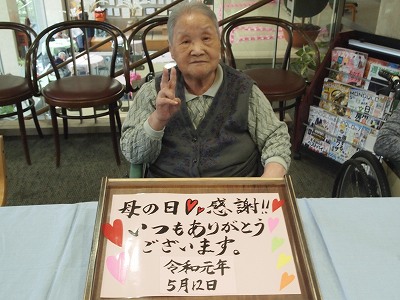 母の日♥♥感謝!!
いつもありがとう
ございます。
令和元年
5月12日